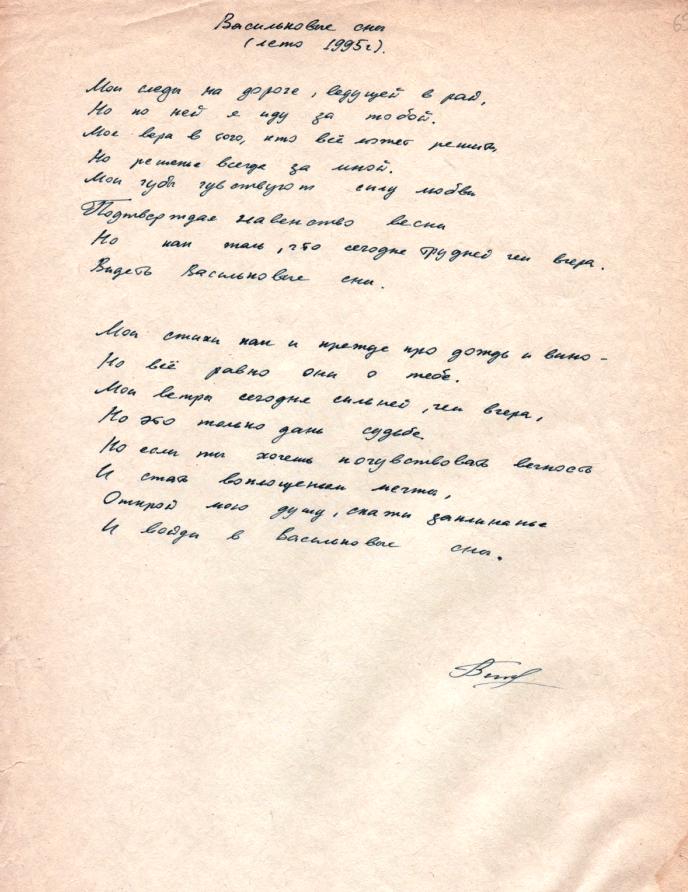 Васильковые сны
(лето 1995г).
Мои следы на дороге, ведущей в рай,
Но по ней я иду за тобой.
Моя вера в того, кто всё может решить,
Но решенье всегда за мной.
Мои губы чувствуют силу любви
Подтверждая главенство весны
Но как жаль, что сегодня трудней чем вчера.
Видеть Васильковые сны.
Мои стихи как и прежде про дождь и вино -
Но всё равно они о тебе.
Мои ветры сегодня сильней, чем вчера,
Но это только дань судьбе.
Но если ты хочешь почувствовать вечность
И стать воплощеньем мечты,
Открой мою душу, скажи заклинанье
И войди в Васильковые сны.